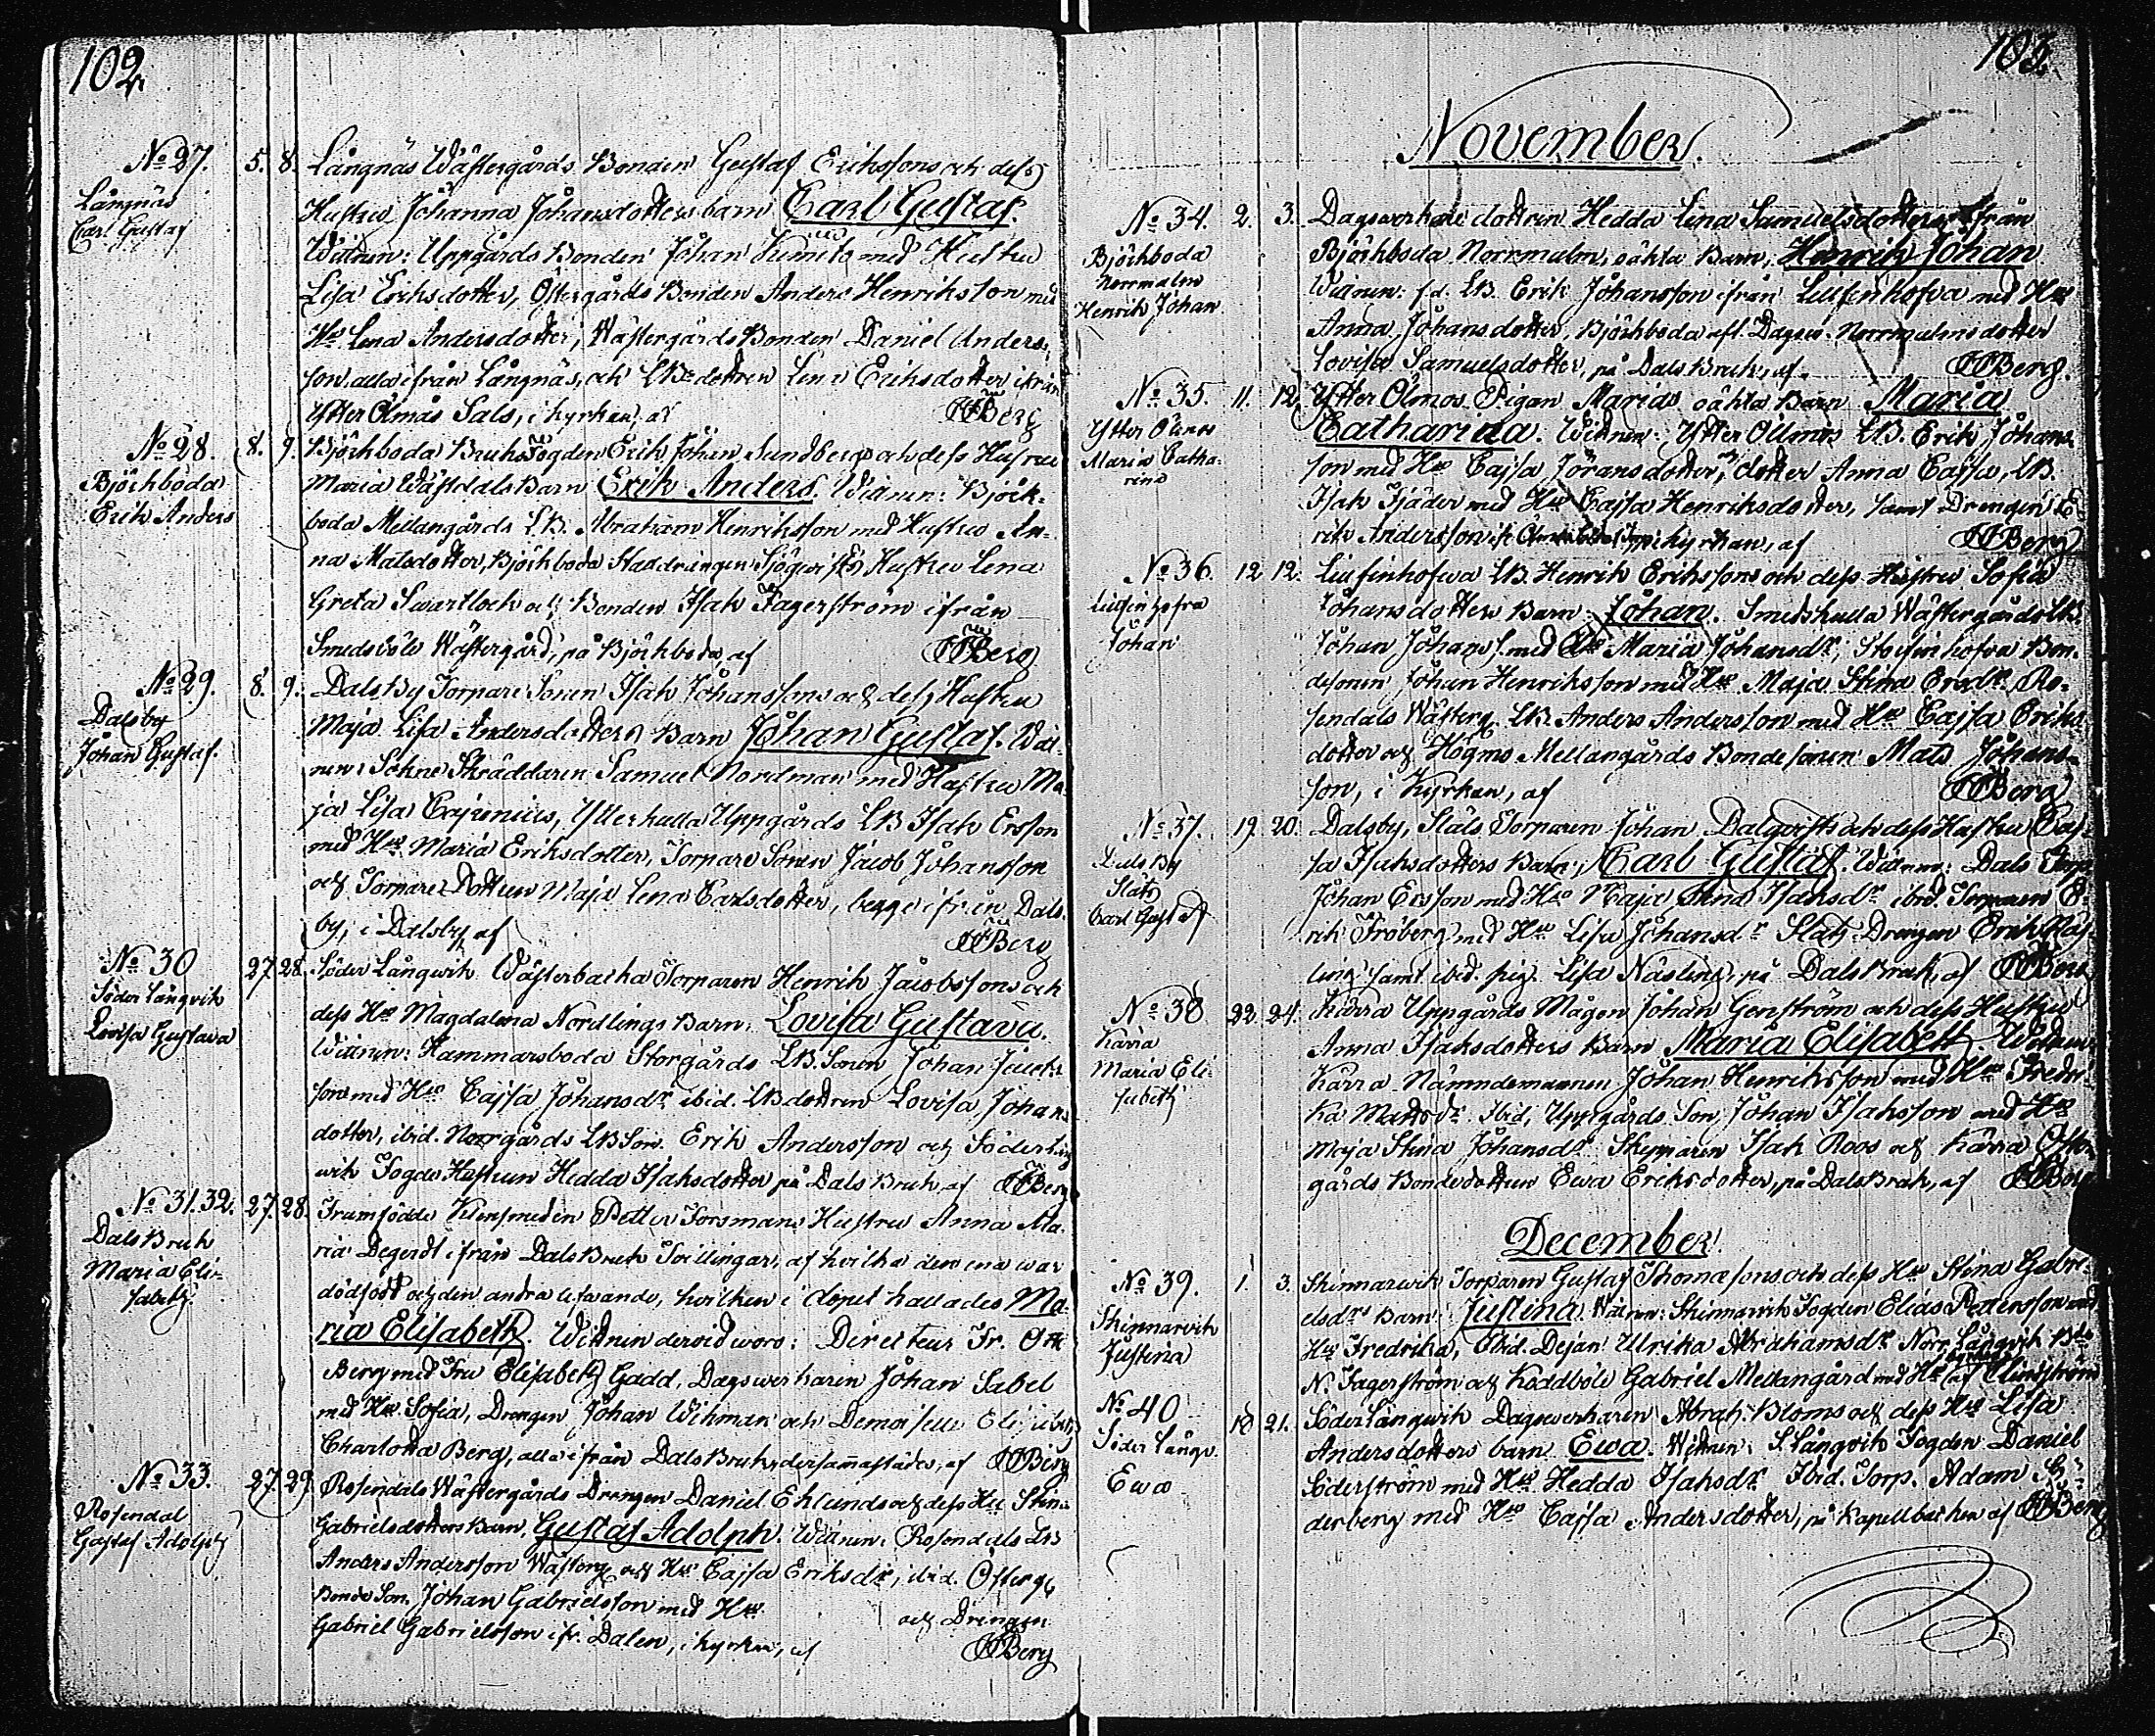 102
No 27.
Långnäs
Carl Gustaf
5. 8. Långnäs Wästergårds Bonden Gustaf Erikssons och dess
Hustru Johanna Johansdotters barn Carl Gustaf.
Wittnen: Uppgårds Bonden Johan Kumito med Hustru
Lisa Eriksdotter, Östergårds Bonden Anders Henriksson med
Hu Lena Andersdotter, Wästergårds Bonden Daniel Anders-
son, alla ifrån Långnäs, och LBdottren Lena Eriksdotter ifrån
Ytter Ölmås Sals, i kyrkan, af Berg
No 28.
Björkboda
Erik Anders
8. 9. Björkboda Bruksfogden Erik Johan Sundbergs och dess Hustru
Maria Wästdals Barn Erik Anders. Wittnen: Björk-
boda Mellangårds LB. Abraham Hinriksson med Hustru An-
na Matsdotter, Björkboda Stadsdrängen Sjögrens Hustru Lena
Greta Swartlock och Bonden Isak Fagerström ifrån
Smedsböle Wästergård, på Björkboda, af Berg
No 29.
Dalsby
Johan Gustaf.
8. 9. Dalsby Torpare Sonen Isak Johanssons och dess Hustru
Maja Lisa Andersdotters Barn Johan Gustaf. Witt-
nen: Sokne Skräddaren Samuel Nordman med Hustru Ma-
ja Lisa Cajenius, Ytterkulla Uppgårds LB Isak Ersson
med Hu Maria Eriksdotter, Torpare Sonen Jacob Johansson
och Torpare Dottren Maja Lena Carlsdotter, begge ifrån Dals-
by, i Dalsby af Berg
No 30
Söder Långvik
Lovisa Gustava
27. 28. Söder Långwik Wästerbacka Torparen Henrik Jacobssons och
dess Hu Magdalena Nordlings Barn: Lovisa Gustava.
Wittnen: Hammarsboda Storgårds LB. Sonen Johan Jacobs-
son med Hu Cajsa Johansdr ibid. LBdottren Lovisa Johans
dotter, ibid. Norrgårds LBSon Erik Andersson och Söderlång
wik Fogde Hustrun Hedda Isaksdotter på Dals Bruk, af Berg
No 31. 32.
Dals Bruk
Maria Eli-
sabeth.
27. 28. Framfödde Klensmeden Petter Forsmans Hustru Anna Ma-
ria Degerdt ifrån Dals Bruk Tvillingar, af hvilka den ena war
dödfödt och den andra lefwande, hvilken i dopet kallades Ma-
ria Elisabeth. Wittnen dervid woro: Directeur Fr. Ott
Berg med Fru Elisabeth Gadd, Dagswerkaren Johan Sabel
med Hu Sofia, Drengen Johan Wikman och Demoiselle Elisabeth
Charlotta Berg, alla ifrån Dals Bruk, dersammastädes, af Berg
No 33.
Rosendal
Gustaf Adolph
27. 29. Rosendals Wästergårds Drengen Daniel Eklunds och dess Hu Stina
Gabrielsdotters Barn, Gustaf Adolph. Wittnen: Rosendals LB
Anders Andersson Wästerg och Hu Cajsa Eriksdr, ibid. Österg
Bonde Son Johan Gabrielsson med Hu och Drengen
Gabriel Gabrielsson ifr. Dalen, i kyrkan, af Berg
103.
November.
No 34.
Björkboda
Norrmalm
Henrik Johan
2. 3. Dagswerkare dottren Hedda Lena Samuelsdotters ifrån
Björkboda Norrmalm, oäkta Barn, Henrik Johan
Wittnen: f.d. LB. Erik Johansson ifrån med Hu
Anna Johansdotter, Björkboda afl. Dagsv. Norrmalms dotter
Lovisa Samuelsdotter, på Dals Bruk, af Berg.
No 35.
Ytter Ölmos
Maria Catha-
rina
11. 12. Ytter Ölmos Pigan Marias oäkta Barn Maria
Catharina. Wittnen: Ytter Ollmos LB. Erik Johans-
son med Hu Cajsa Jöransdotter, dotter Anna Cajsa, LB.
Isak Fjäder med Hu Cajsa Henriksdotter, samt Drengen E-
rik Andersson i kyrkan, af Berg
No 36.
Johan
12. 12. LB Henrik Erikssons och dess Hustru Sofia
Johansdotters Barn: Johan. Smedskulla Wästergårds LB.
Johan Johans. med Hu Maria Johansdr, Bon-
desonen Johan Henriksson med Hu Maja Stina Ersdr, Ro-
sendals Wästerg. LB. Anders Andersson med Hu Cajsa Eriks
dotter och Högmo Mellangårds Bondesonen Mats Johans-
son, i Kyrkan, af Berg
No 37.
Dalsby
Släts
Carl Gustaf
19. 20. Dalsby, Släts Torparen Johan Dalqvists och dess Hustru Caj-
sa Isaksdotters Barn, Carl Gustaf. Wittnen: Dals Torp
Johan Ersson med Hu Maja Stina Isaksdr ibid. Torparen E-
rik Fröberg med Hu Lisa Johansdr Släts Drengen Erik Näs-
ling samt ibid. pig. Lisa Näsling, på Dals Bruk, af Berg
No 38
Kärra
Maria Eli-
sabeth
22. 24. Kärra Uppgårds Mågen Johan Genström och dess Hustru
Anna Isaksdotters Barn Maria Elisabeth. Wittnen
Kärra Nämndemannen Johan Henriksson med Hu Fredri-
ka Mattsdr. Ibid. Uppgårds Son, Johan Isaksson med Hu
Maja Stina Johansdr. Skepparen Isak Roos och Kärra Öster-
gårds Bondedottren Ewa Eriksdotter, på Dals Bruk, af Berg
December.
No 39.
Skinnarvik
Justina
1. 3. Skinnarwik Torparen Gustaf Thomæsons och dess Hu Stina Gabri-
elsdrs Barn: Justina. Wittnen: Skinnarvik Fogden Elias Pettersson med
Hu Fredrika, Ibid. Dejan Ulrika Abrahamsdr Norr Långwik Bde
N. Fagerström och Keddböle Gabriel Mellangård med Hu
No 40
Söder Långv.
Ewa
18 21. Söder Långwik Dagswerkaren Abrah. Bloms och dess Hu Lisa
Andersdotters barn Ewa. Wittnen: S. Långvik Fogden Daniel
Söderström med Hu Hedda Isaksdr Ibid. Torp. Adam Sö-
derberg med Hu Cajsa Andersdotter, på Kapellbacken af Berg